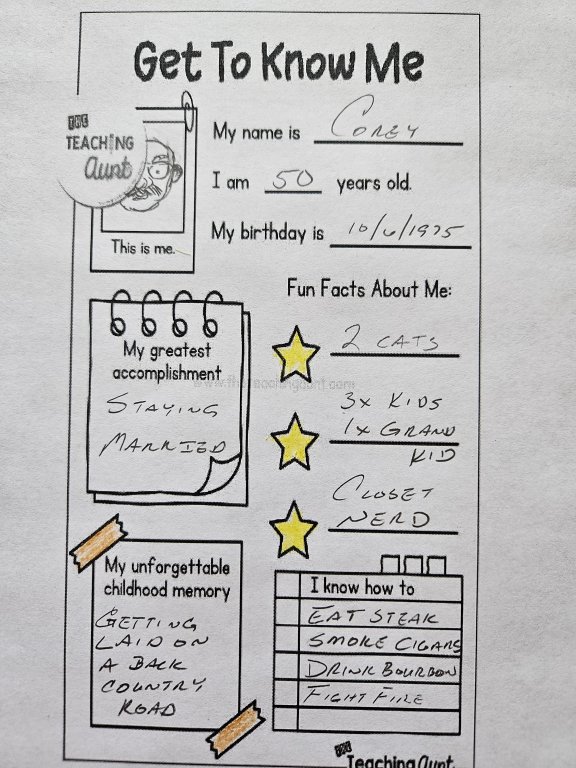 Get To Know Me
THE
TEACHING
Aunt
My name is COREY
I am 50 years old.
My birthday is 10/6/1975
This is me.
Fun Facts About Me:
2 CATS
3x KIDS
1x GRAND
KID
CLOSET
NERD
My greatest
accomplishment
STAYING
MARRIED
www.theteachingaunt.com
My unforgettable
childhood memory
GETTING
LAID ON
A BACK
COUNTRY
ROAD
I know how to
EAT STEAK
SMOKE CIGARS
DRINK BOURBON
FIGHT FIRE
THE
Teaching Aunt.